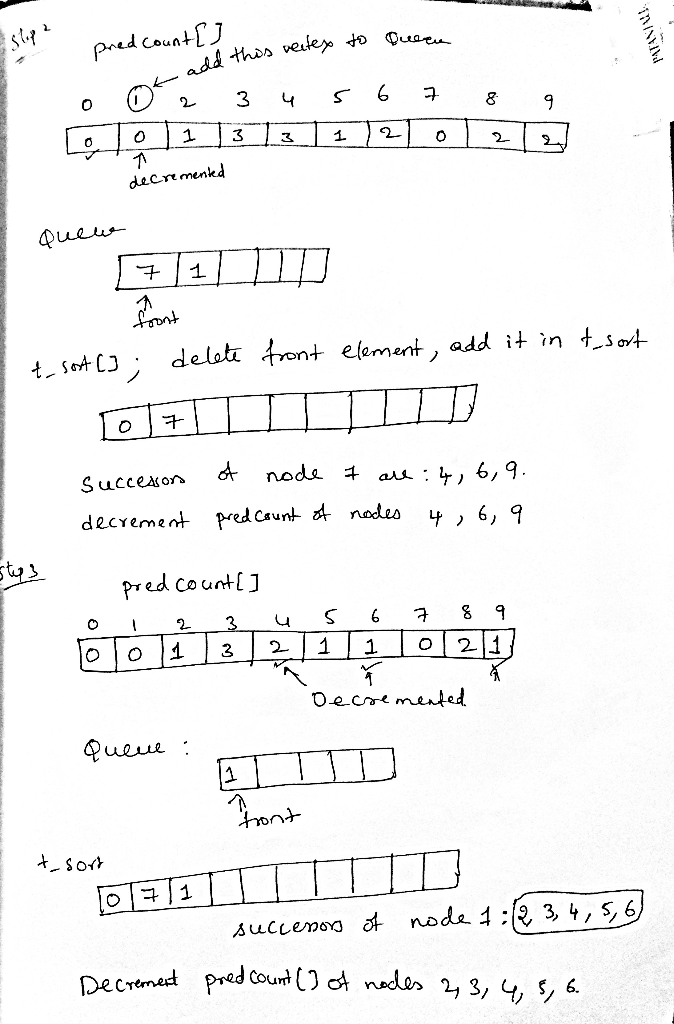 Step 2
pred count[]
add this vertex to Queue
0 1 2 3 4 5 6 7 8 9
0 0 1 3 3 1 2 0 2 2
decremented
Queue
7 1
front
t_sort[]; delete front element, add it in t_sort
0 7
Successors of node 7 are : 4, 6, 9.
decrement pred count of nodes 4, 6, 9
Step 3
pred count[]
0 1 2 3 4 5 6 7 8 9
0 0 1 3 2 1 1 0 2 1
Decremented
Queue :
1
front
t_sort
0 7 1
successors of node 1 : 2, 3, 4, 5, 6
Decrement pred count[] of nodes 2, 3, 4, 5, 6.